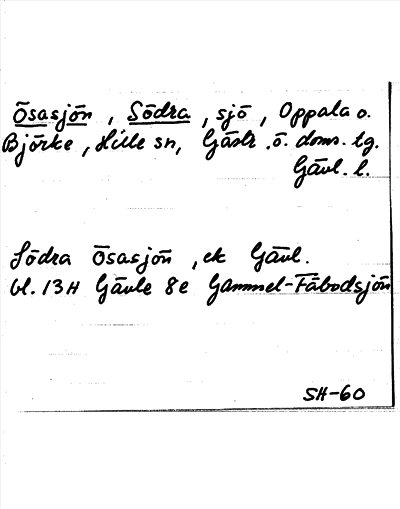 Ösasjön, Södra, sjö, Oppala o.
Björke, Hille sn, Gästr. ö. doms. tg.
Gävl. l.
Södra Ösasjön, ek Gävl.
bl. 13H Gävle 8e Gammel-Fäbodsjön
SH-60